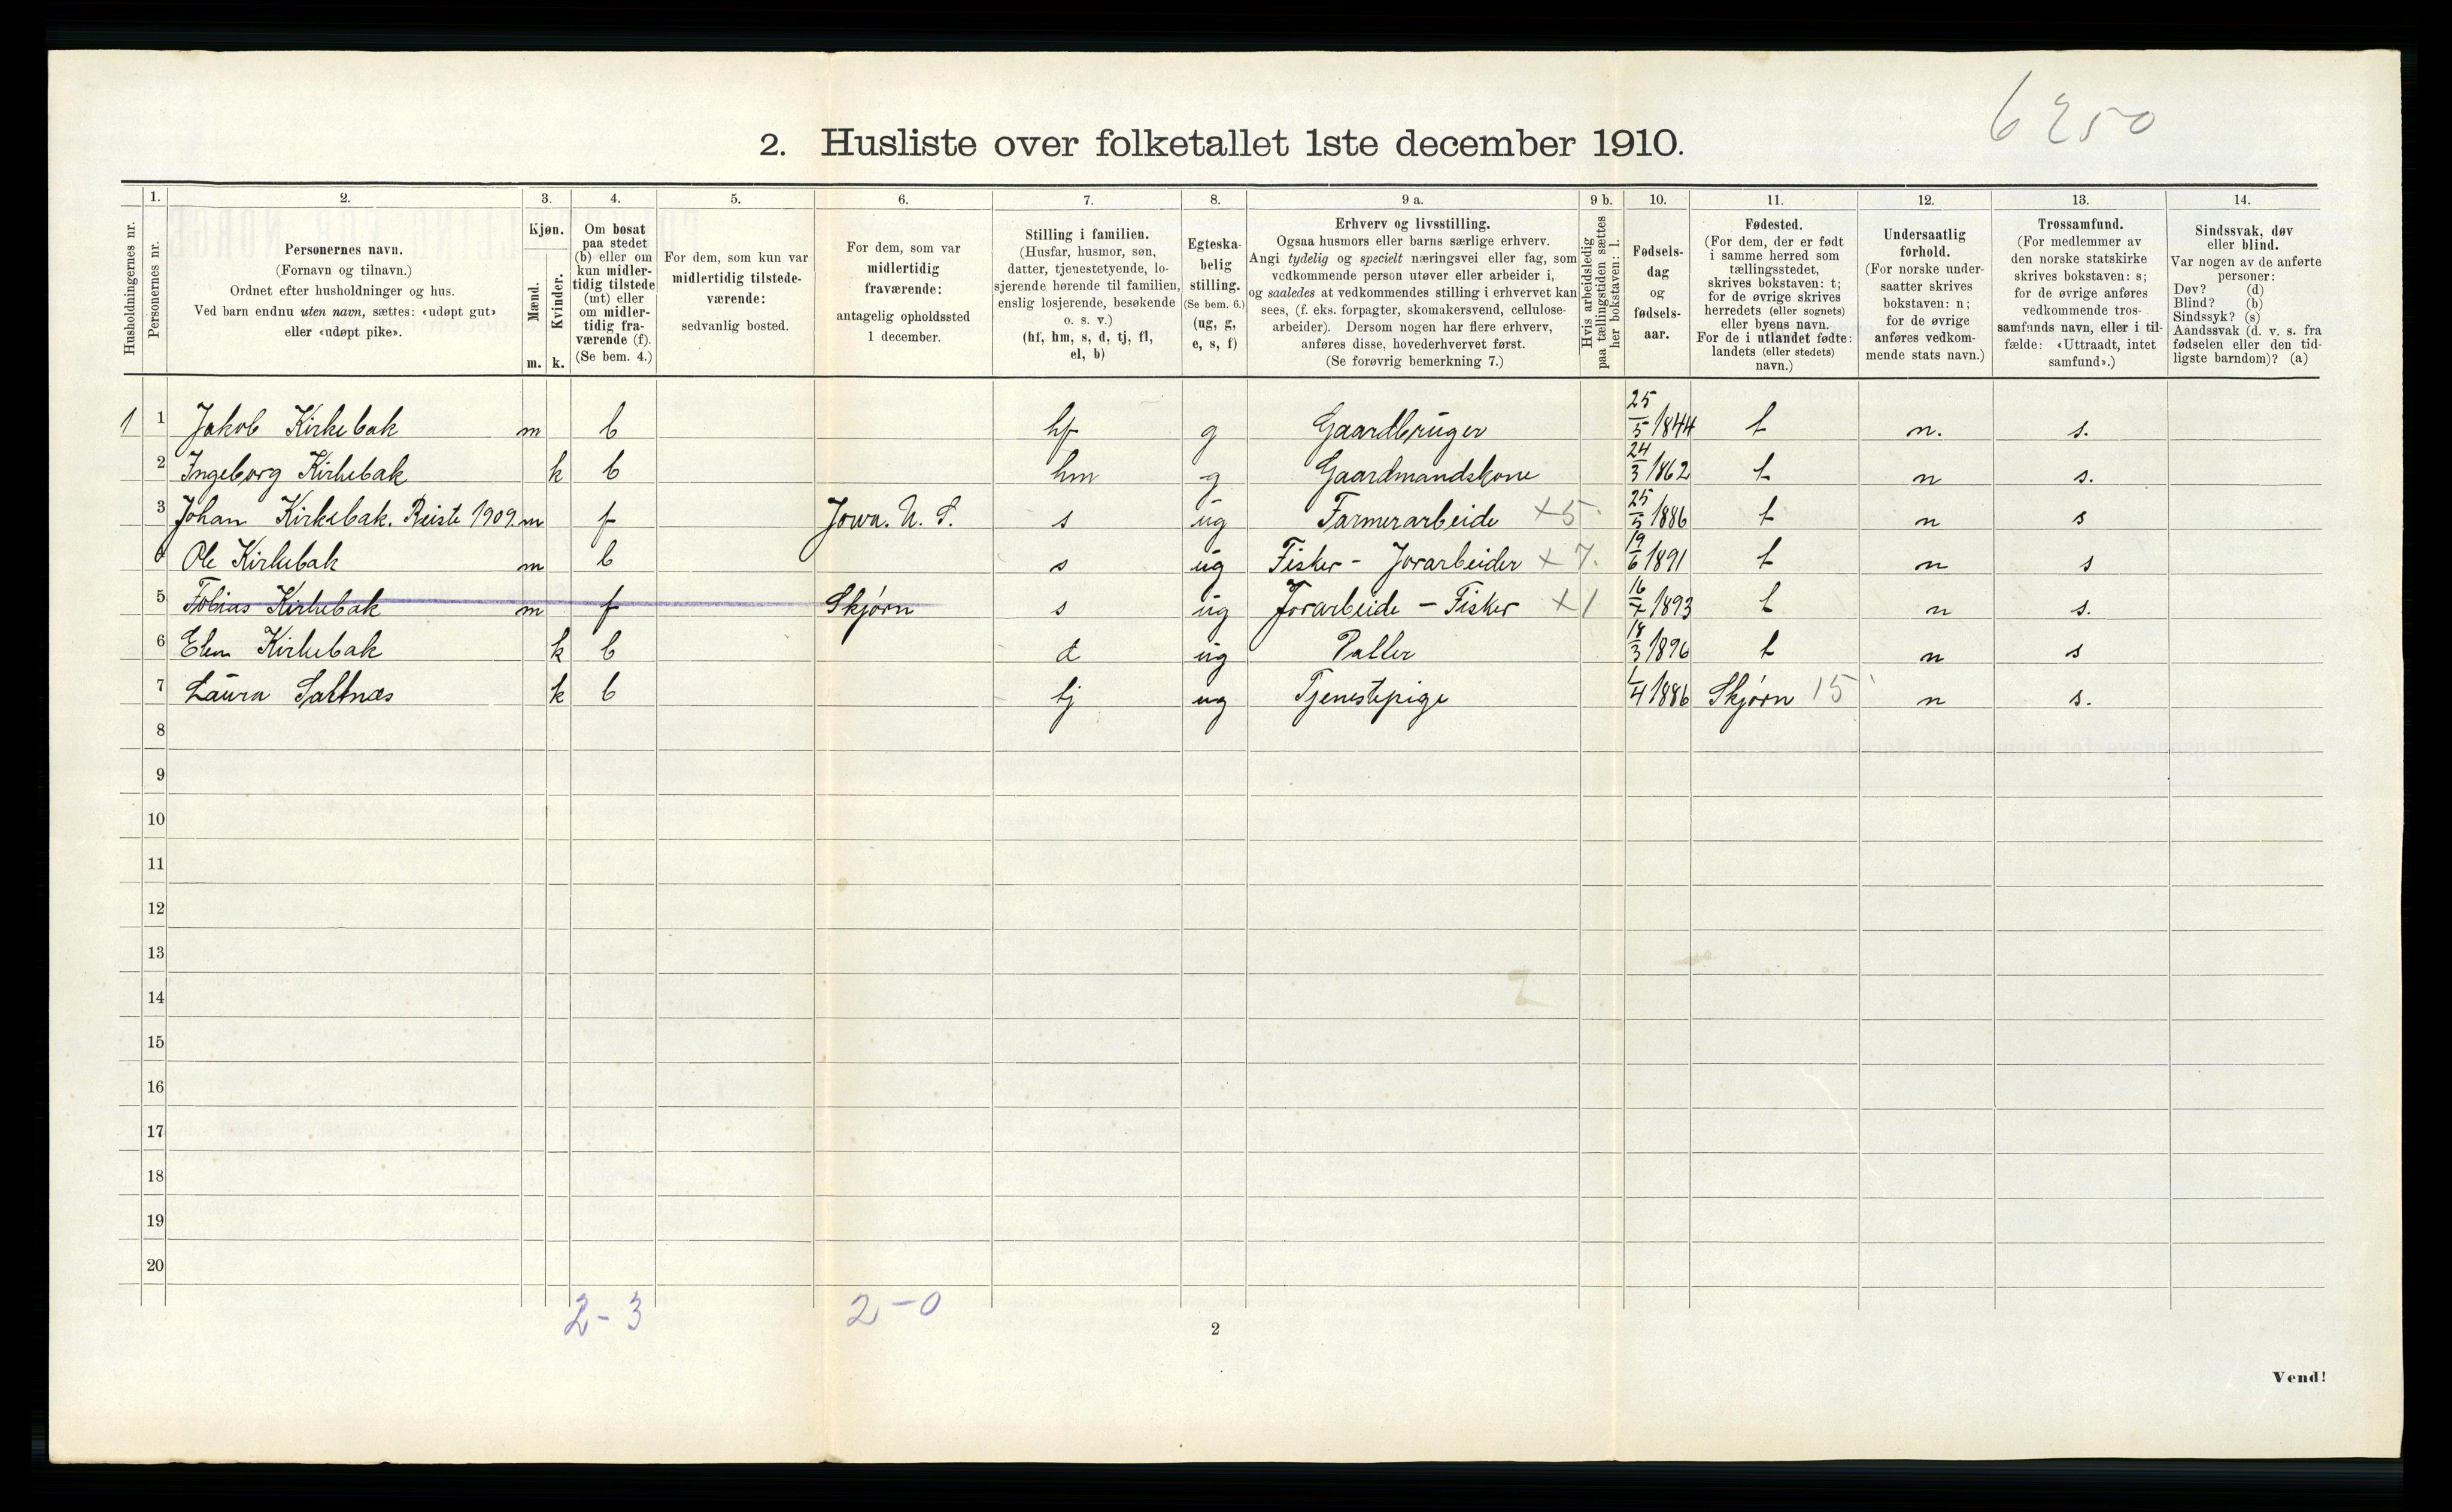 6250
2. Husliste over folketallet 1ste december 1910.
Husholdningernes nr.
1.
Personernes nr.
2.
Personernes navn.
(Fornavn og tilnavn.)
Ordnet efter husholdninger og hus.
Ved barn endnu uten navn, sættes: «udøpt gut»
eller «udøpt pike».
3.
Kjøn.
Mænd.
Kvinder.
m. k.
4.
Om bosat
paa stedet
(b) eller om
kun midler-
tidig tilstede
(mt) eller
om midler-
tidig fra-
værende (f).
(Se bem. 4.)
5.
For dem, som kun var
midlertidig tilstede-
værende:
sedvanlig bosted.
6.
For dem, som var
midlertidig
fraværende:
antagelig opholdssted
1 december.
7.
Stilling i familien.
(Husfar, husmor, søn,
datter, tjenestetyende, lo-
sjerende hørende til familien,
enslig losjerende, besøkende
o. s. v.)
(hf, hm, s, d, tj, fl,
el, b)
8.
Egteska-
belig
stilling.
(Se bem. 6.)
(ug, g,
e, s, f)
9 a.
Erhverv og livsstilling.
Ogsaa husmors eller barns særlige erhverv.
Angi tydelig og specielt næringsvei eller fag, som
vedkommende person utøver eller arbeider i,
og saaledes at vedkommendes stilling i erhvervet kan
sees, (f. eks. forpagter, skomakersvend, cellulose-
arbeider). Dersom nogen har flere erhverv,
anføres disse, hovederhvervet først.
(Se forøvrig bemerkning 7.)
9 b.
Hvis arbeidsledig
paa tællingstiden sættes
her bokstaven: l.
10.
Fødsels-
dag
og
fødsels-
aar.
11.
Fødested.
(For dem, der er født
i samme herred som
tællingsstedet,
skrives bokstaven: t;
for de øvrige skrives
herredets (eller sognets)
eller byens navn.
For de i utlandet fødte:
landets (eller stedets)
navn.)
12.
Undersaatlig
forhold.
(For norske under-
saatter skrives
bokstaven: n;
for de øvrige
anføres vedkom-
mende stats navn.)
13.
Trossamfund.
(For medlemmer av
den norske statskirke
skrives bokstaven: s;
for de øvrige anføres
vedkommende tros-
samfunds navn, eller i til-
fælde: «Uttraadt, intet
samfund».)
14.
Sindssvak, døv
eller blind.
Var nogen av de anførte
personer:
Døv? (d)
Blind? (b)
Sindssyk? (s)
Aandssvak (d. v. s. fra
fødselen eller den tid-
ligste barndom)? (a)
1 1 Jakob Kirkebak m b hf g Gaardbruger 25/5 1844 t n. s.
2 Ingeborg Kirkebak k b hm g Gaardmandskone 24/3 1862 t n s.
3 Johan Kirkebak. Reiste 1909. m f Jowa. U. S. s ug Farmerarbeide +5. 25/5 1886 t n s
4 Ole Kirkebak m b s ug Fisker - Jorarbeider + 7. 19/6 1891 t n s
5 Tobias Kirkebak m f Skjørn s ug Jorarbeide - Fisker +1 16/7 1893 t n s.
6 Elen Kirkebak k b d ug 18/3 1896 t n s
7 Laura Saltnæs k b tj ug Tjenestepige 1/4 1886 Skjørn 15 n s.
8
9
10
11
12
13
14
15
16
17
18
19
20
2-3 2-0
2
Vend!